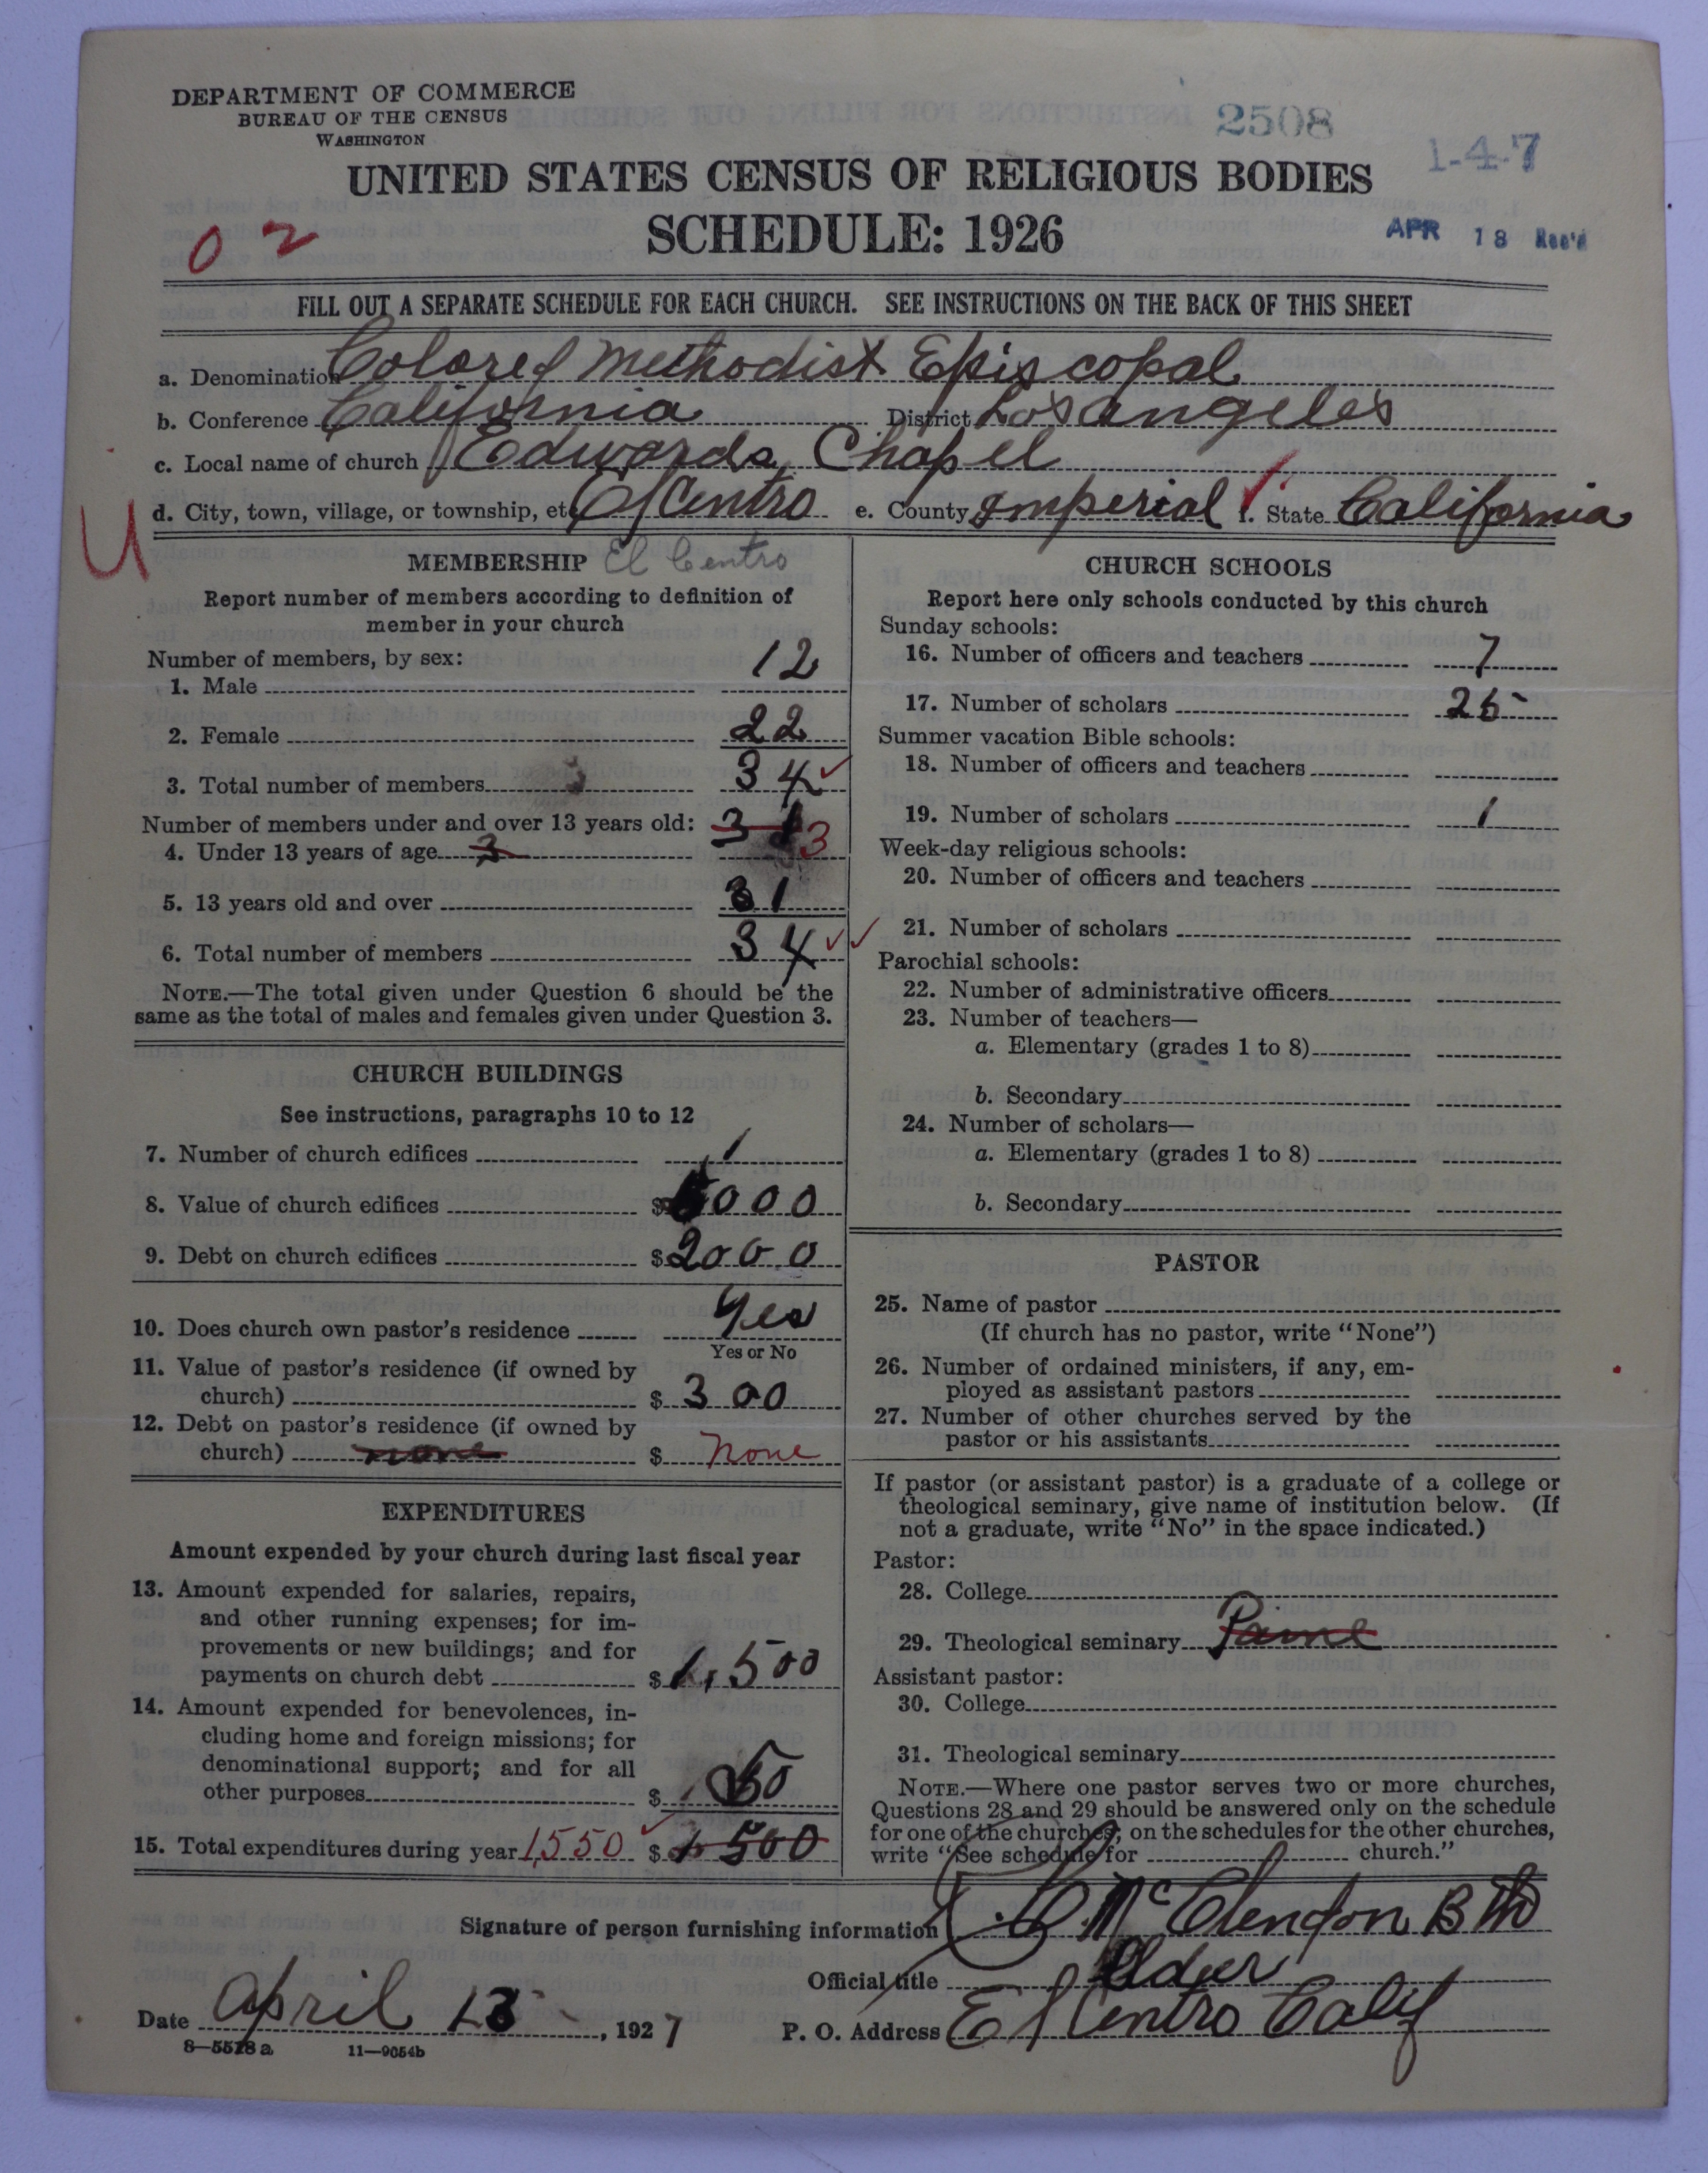 DEPARTMENT OF COMMERCE
BUREAU OF THE CENSUS
WASHINGTON
2508
1-4-7
UNITED STATES CENSUS OF RELIGIOUS BODIES
SCHEDULE: 1926
APR 18 Rec'd
02
FILL OUT A SEPARATE SCHEDULE FOR EACH CHURCH. SEE INSTRUCTIONS ON THE BACK OF THIS SHEET
a. Denomination Colored Methodist Episcopal
b. Conference California District Los Angeles
c. Local name of church Edwards Chapel
U
d. City, town, village, or township, etc. El Centro e. County Imperial f. State California
MEMBERSHIP El Centro
Report number of members according to definition of
member in your church
Number of members, by sex:
1. Male 12
2. Female 22
3. Total number of members 34
Number of members under and over 13 years old:
4. Under 13 years of age 3 3
5. 13 years old and over 31
6. Total number of members 34
NOTE.—The total given under Question 6 should be the
same as the total of males and females given under Question 3.
CHURCH BUILDINGS
See instructions, paragraphs 10 to 12
7. Number of church edifices 1
8. Value of church edifices $ 000
9. Debt on church edifices $2000
10. Does church own pastor's residence Yes
Yes or No
11. Value of pastor's residence (if owned by
church) $ 300
12. Debt on pastor's residence (if owned by
church) none $ none
EXPENDITURES
Amount expended by your church during last fiscal year
13. Amount expended for salaries, repairs,
and other running expenses; for im-
provements or new buildings; and for
payments on church debt $1,500
14. Amount expended for benevolences, in-
cluding home and foreign missions; for
denominational support; and for all
other purposes $ 50
15. Total expenditures during year 1,550 $ 1500
CHURCH SCHOOLS
Report here only schools conducted by this church
Sunday schools:
16. Number of officers and teachers 7
17. Number of scholars 25
Summer vacation Bible schools:
18. Number of officers and teachers
19. Number of scholars 1
Week-day religious schools:
20. Number of officers and teachers
21. Number of scholars
Parochial schools:
22. Number of administrative officers
23. Number of teachers—
a. Elementary (grades 1 to 8)
b. Secondary
24. Number of scholars—
a. Elementary (grades 1 to 8)
b. Secondary
PASTOR
25. Name of pastor
(If church has no pastor, write "None")
26. Number of ordained ministers, if any, em-
ployed as assistant pastors
27. Number of other churches served by the
pastor or his assistants
If pastor (or assistant pastor) is a graduate of a college or
theological seminary, give name of institution below. (If
not a graduate, write "No" in the space indicated.)
Pastor:
28. College
29. Theological seminary Paine
Assistant pastor:
30. College
31. Theological seminary
NOTE.—Where one pastor serves two or more churches,
Questions 28 and 29 should be answered only on the schedule
for one of the churches; on the schedules for the other churches,
write "See schedule for church."
Signature of person furnishing information McClendon
Official title Elder
Date April 13, 1927 P. O. Address El Centro Calif
8—5528 a 11—9054b